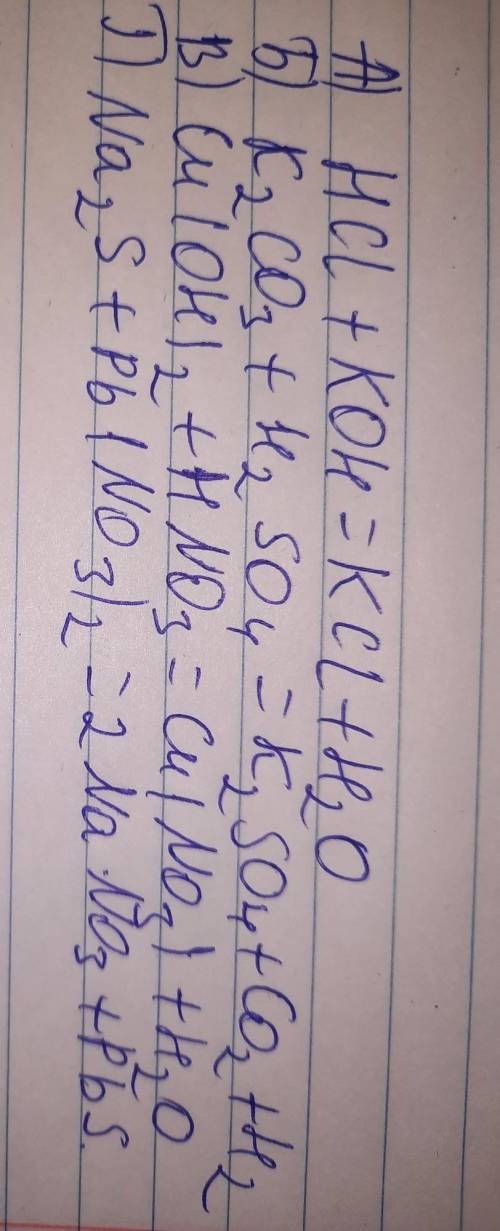 А) HCl + KOH = KCl + H₂O
Б) K₂CO₃ + H₂SO₄ = K₂SO₄ + CO₂ + H₂
В) Cu(OH)₂ + HNO₃ = Cu(NO₃) + H₂O
Г) Na₂S + Pb(NO₃)₂ = 2NaNO₃ + PbS.